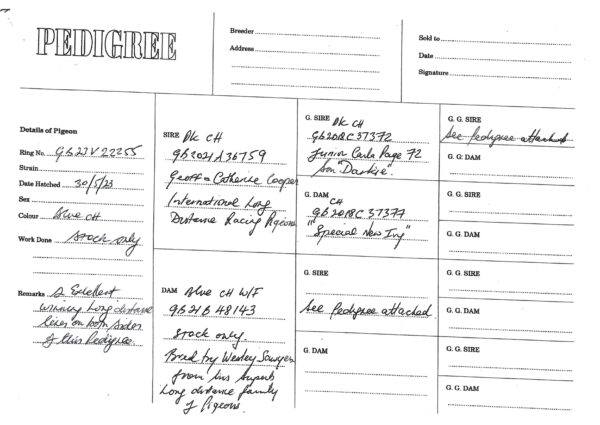 PEDIGREE
Breeder
Address
Sold to
Date
Signature
Details of Pigeon
Ring No. GB23V22255
Strain
Date Hatched 30/5/23
Sex
Colour Blue CH
Work Done Stock only
Remarks A Excellent
winning Long distance
lines on both sides
of this Pedigree.
SIRE Dk CH
GB2021A36759
Geoff & Catherine Cooper
International Long
Distance Racing Pigeons
DAM Blue CH W/F
GB21B48143
Stock only
Bred by Wesley Sawyer
from his superb
Long distance family
of Pigeons.
G. SIRE Dk CH
GB2018C37372
Junior Carla Page 72
Son "Darkie".
G. DAM CH
GB2018C37377
"Special New Ivy"
G. SIRE
See Pedigree attached
G. DAM
G. G. SIRE
See Pedigree attached
G. G. DAM
G. G. SIRE
G. G. DAM
G. G. SIRE
G. G. DAM
G. G. SIRE
G. G. DAM